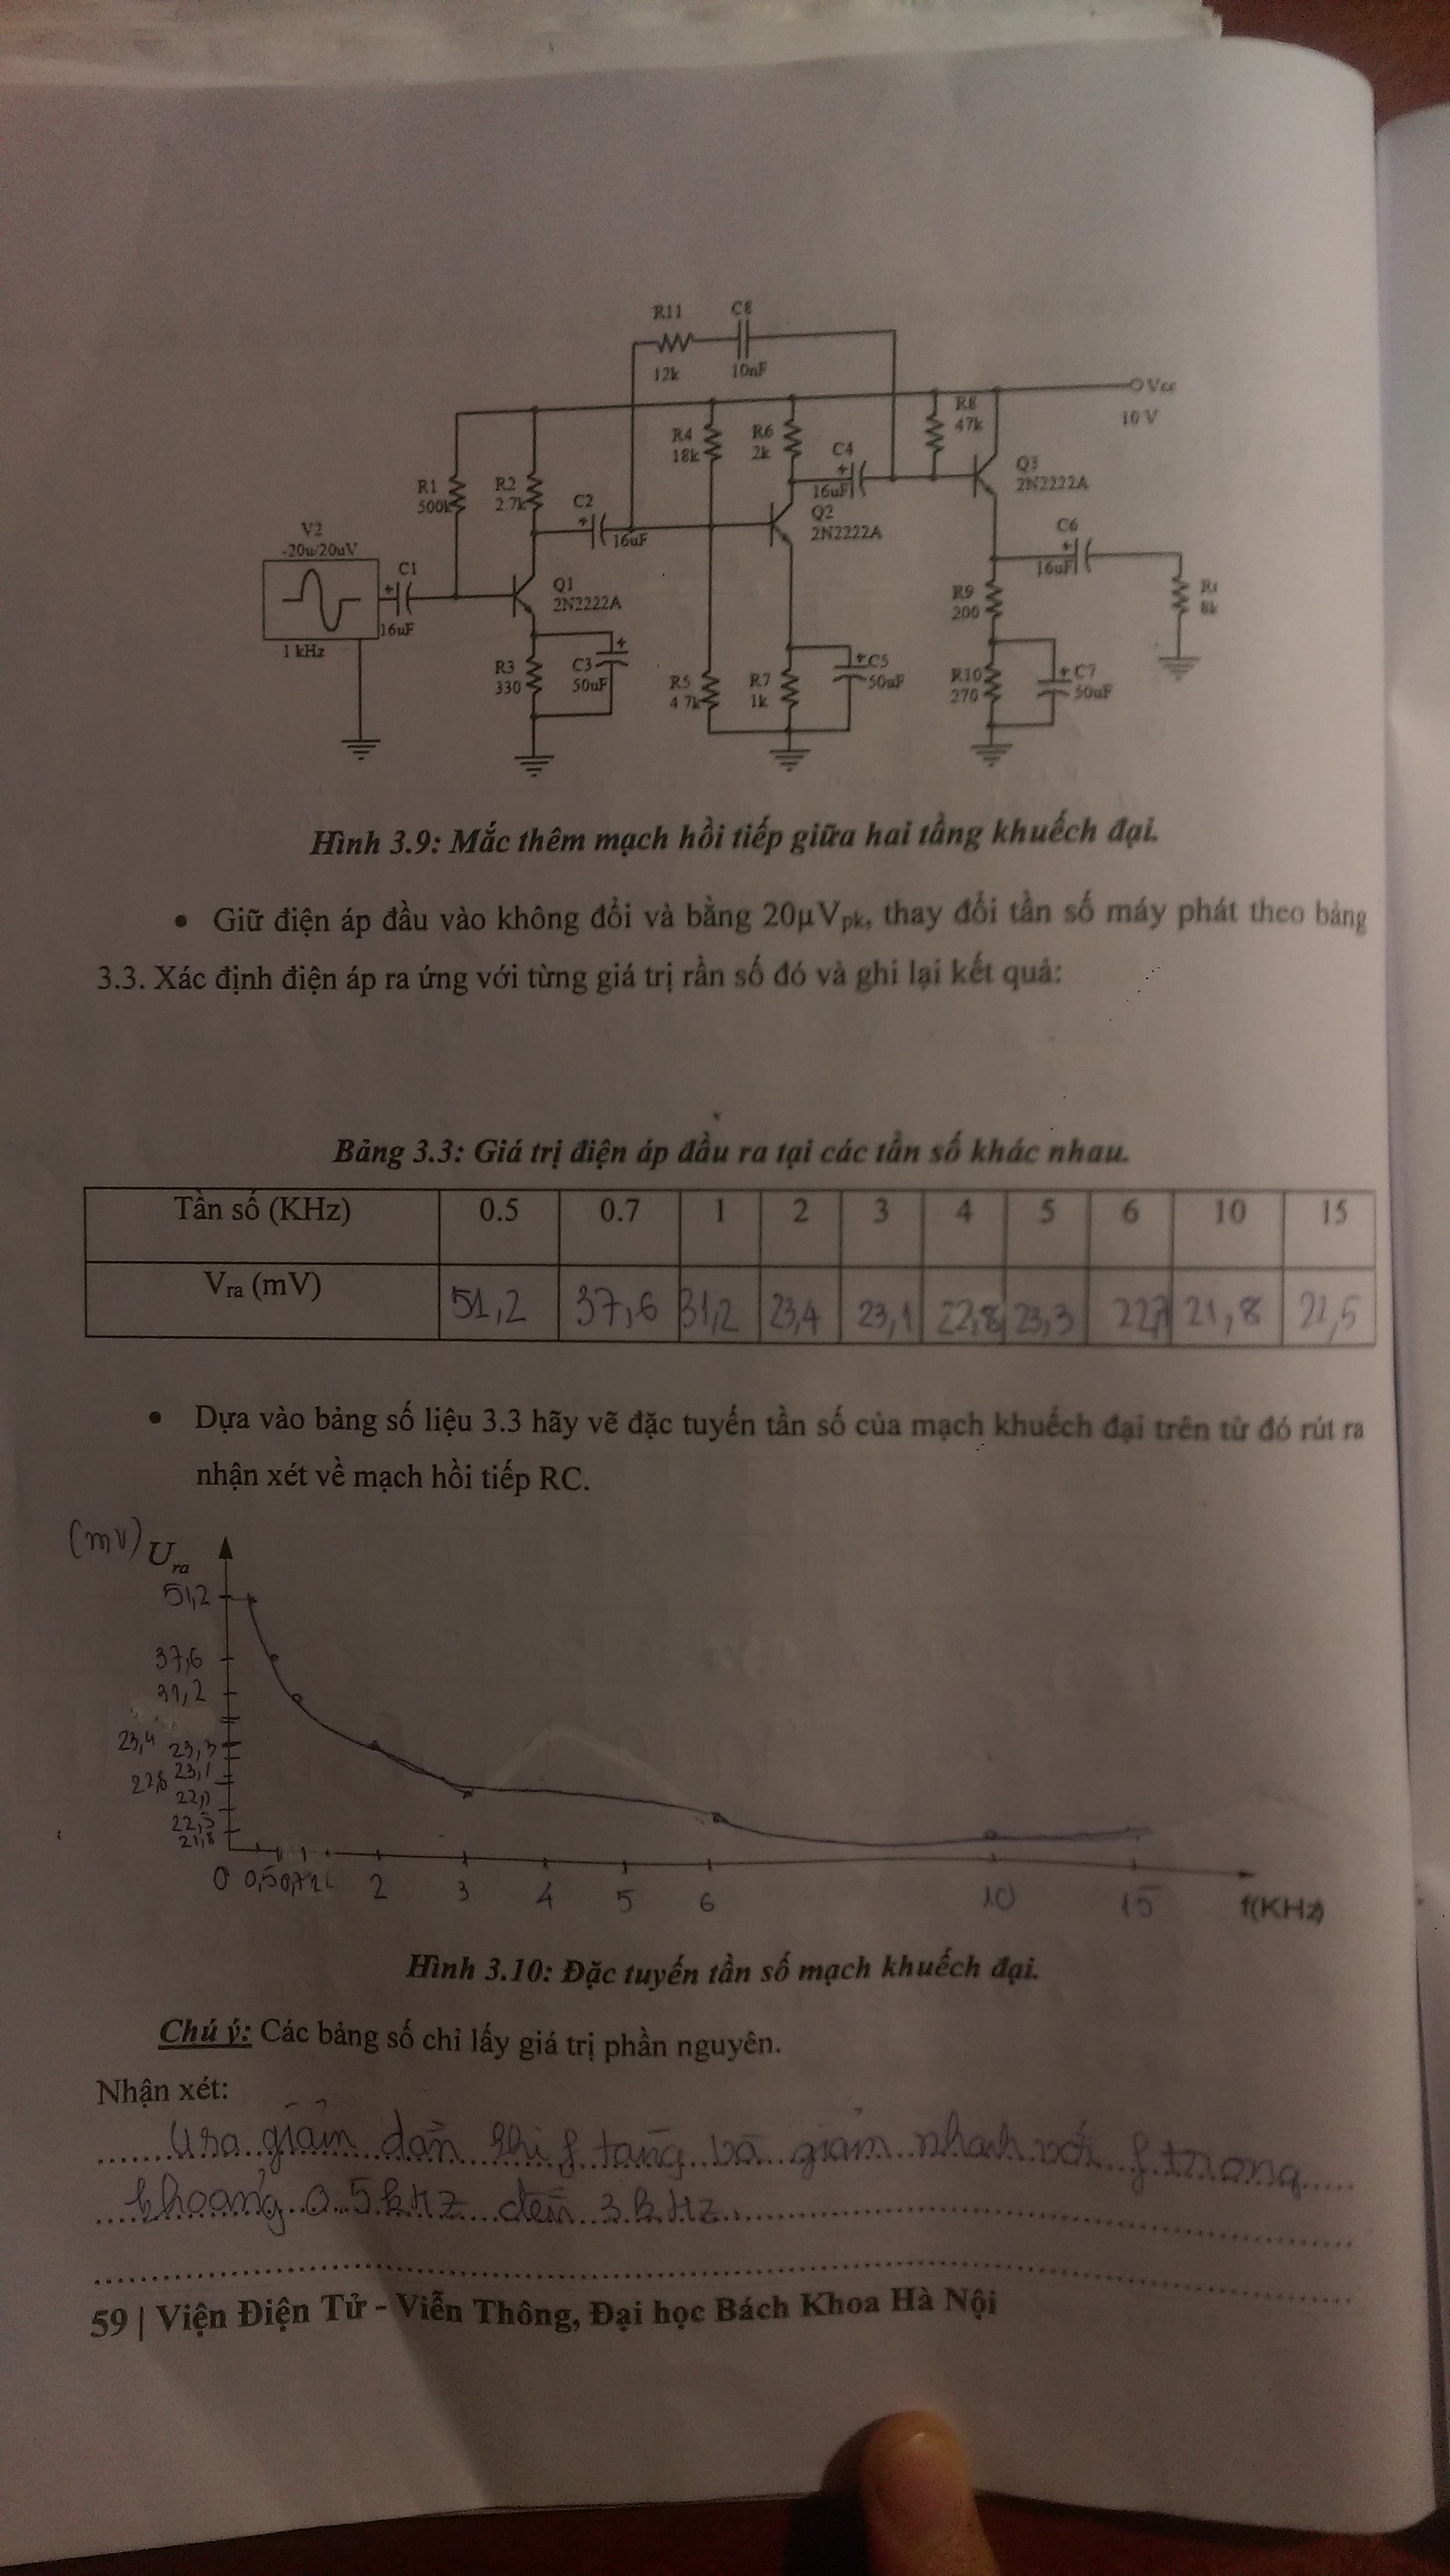 R11 C8
12k 10nF
Vcc
10 V
R8
47k
R4
18k
R6
2k
C4
16uF
Q3
2N2222A
R1
500k
R2
2.7k
C2
16uF
Q2
2N2222A
V2
-20u/20uV
1 kHz
C1
16uF
Q1
2N2222A
C6
16uF
R9
200
8k
R3
330
C3
50uF
R5
4.7k
R7
1k
C5
50uF
R10
270
C7
50uF
Hình 3.9: Mắc thêm mạch hồi tiếp giữa hai tầng khuếch đại.
• Giữ điện áp đầu vào không đổi và bằng 20µVpk, thay đổi tần số máy phát theo bảng
3.3. Xác định điện áp ra ứng với từng giá trị rần số đó và ghi lại kết quả:
Bảng 3.3: Giá trị điện áp đầu ra tại các tần số khác nhau.
Tần số (KHz) 0.5 0.7 1 2 3 4 5 6 10 15
Vra (mV) 51,2 37,6 31,2 23,4 23,1 22,8 23,3 21,8 21,5
• Dựa vào bảng số liệu 3.3 hãy vẽ đặc tuyến tần số của mạch khuếch đại trên từ đó rút ra
nhận xét về mạch hồi tiếp RC.
(mV) Ura
51,2
37,6
31,2
23,4 23,3
22,8 23,1
22,5
21,8
0 0,5 0,7 2 3 4 5 6 10 15 f(KHz)
Hình 3.10: Đặc tuyến tần số mạch khuếch đại.
Chú ý: Các bảng số chỉ lấy giá trị phần nguyên.
Nhận xét:
Ura giảm dần khi f tăng và giảm nhanh với f trong
khoảng 0.5kHz đến 3kHz.
59 | Viện Điện Tử - Viễn Thông, Đại học Bách Khoa Hà Nội